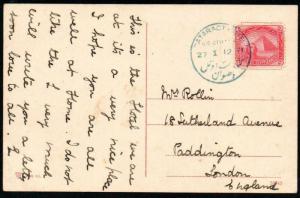 This is the Hotel we are
at its a very nice place
I hope you are all
well at Home. I do not
like the I very much
will write you a letter
soon love to all. I
CATARACT
27 I 12
Mrs Rollin
18 Sutherland Avenue
Paddington
London
England